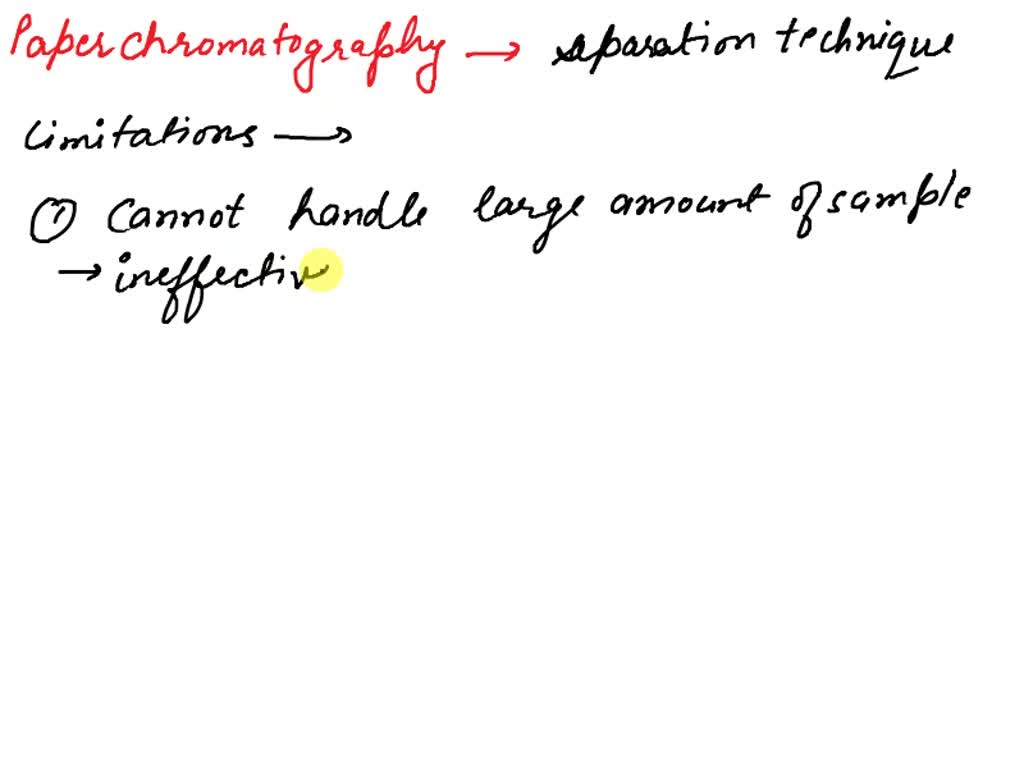 Paper chromatography → separation technique
Limitations →
① Cannot handle large amount of sample
→ ineffectiv